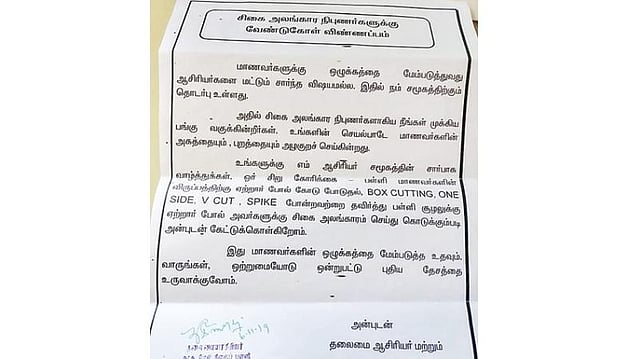 சிகை அலங்கார நிபுணர்களுக்கு
வேண்டுகோள் விண்ணப்பம்
மாணவர்களுக்கு ஒழுக்கத்தை மேம்படுத்துவது
ஆசிரியர்களை மட்டும் சார்ந்த விஷயமல்ல. இதில் நம் சமூகத்திற்கும்
தொடர்பு உள்ளது.
அதில் சிகை அலங்கார நிபுணர்களாகிய நீங்கள் முக்கிய
பங்கு வகுக்கின்றீர்கள். உங்களின் செயல்பாடே மாணவர்களின்
அகத்தையும் , புறத்தையும் அழகுறச் செய்கின்றது.
உங்களுக்கு எம் ஆசிரியர் சமூகத்தின் சார்பாக
வாழ்த்துக்கள். ஓர் சிறு கோரிக்கை – பள்ளி மாணவர்களின்
விருப்பத்திற்கு ஏற்றார் போல் கோடு போடுதல், BOX CUTTING, ONE
SIDE, V CUT , SPIKE போன்றவற்றை தவிர்த்து பள்ளி சூழலுக்கு
ஏற்றார் போல் அவர்களுக்கு சிகை அலங்காரம் செய்து கொடுக்கும்படி
அன்புடன் கேட்டுக்கொள்கிறோம்.
இது மாணவர்களின் ஒழுக்கத்தை மேம்படுத்த உதவும்.
வாருங்கள், ஒற்றுமையோடு ஒன்றுபட்டு புதிய தேசத்தை
உருவாக்குவோம்.
6.11.19
அன்புடன்
தலைமை ஆசிரியர் மற்றும்